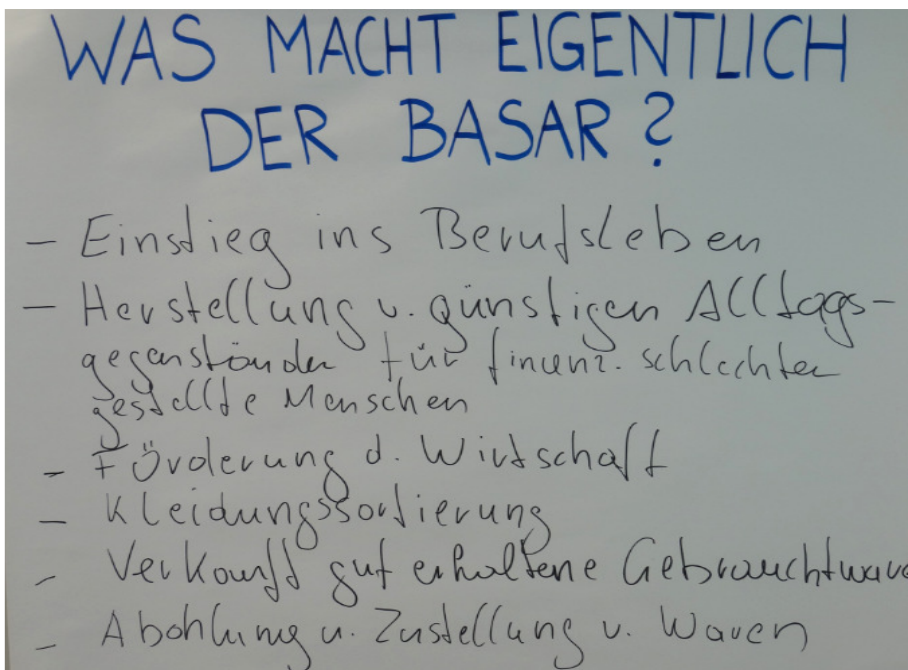 WAS MACHT EIGENTLICH
DER BASAR?
- Einstieg ins Berufsleben
- Herstellung v. günstigen Alltags-
gegenständen für finanz. schlechter
gestellte Menschen
- Förderung d. Wirtschaft
- Kleidungssortierung
- Verkauft gut erhaltene Gebrauchtware
- Abohlung u. Zustellung v. Waren